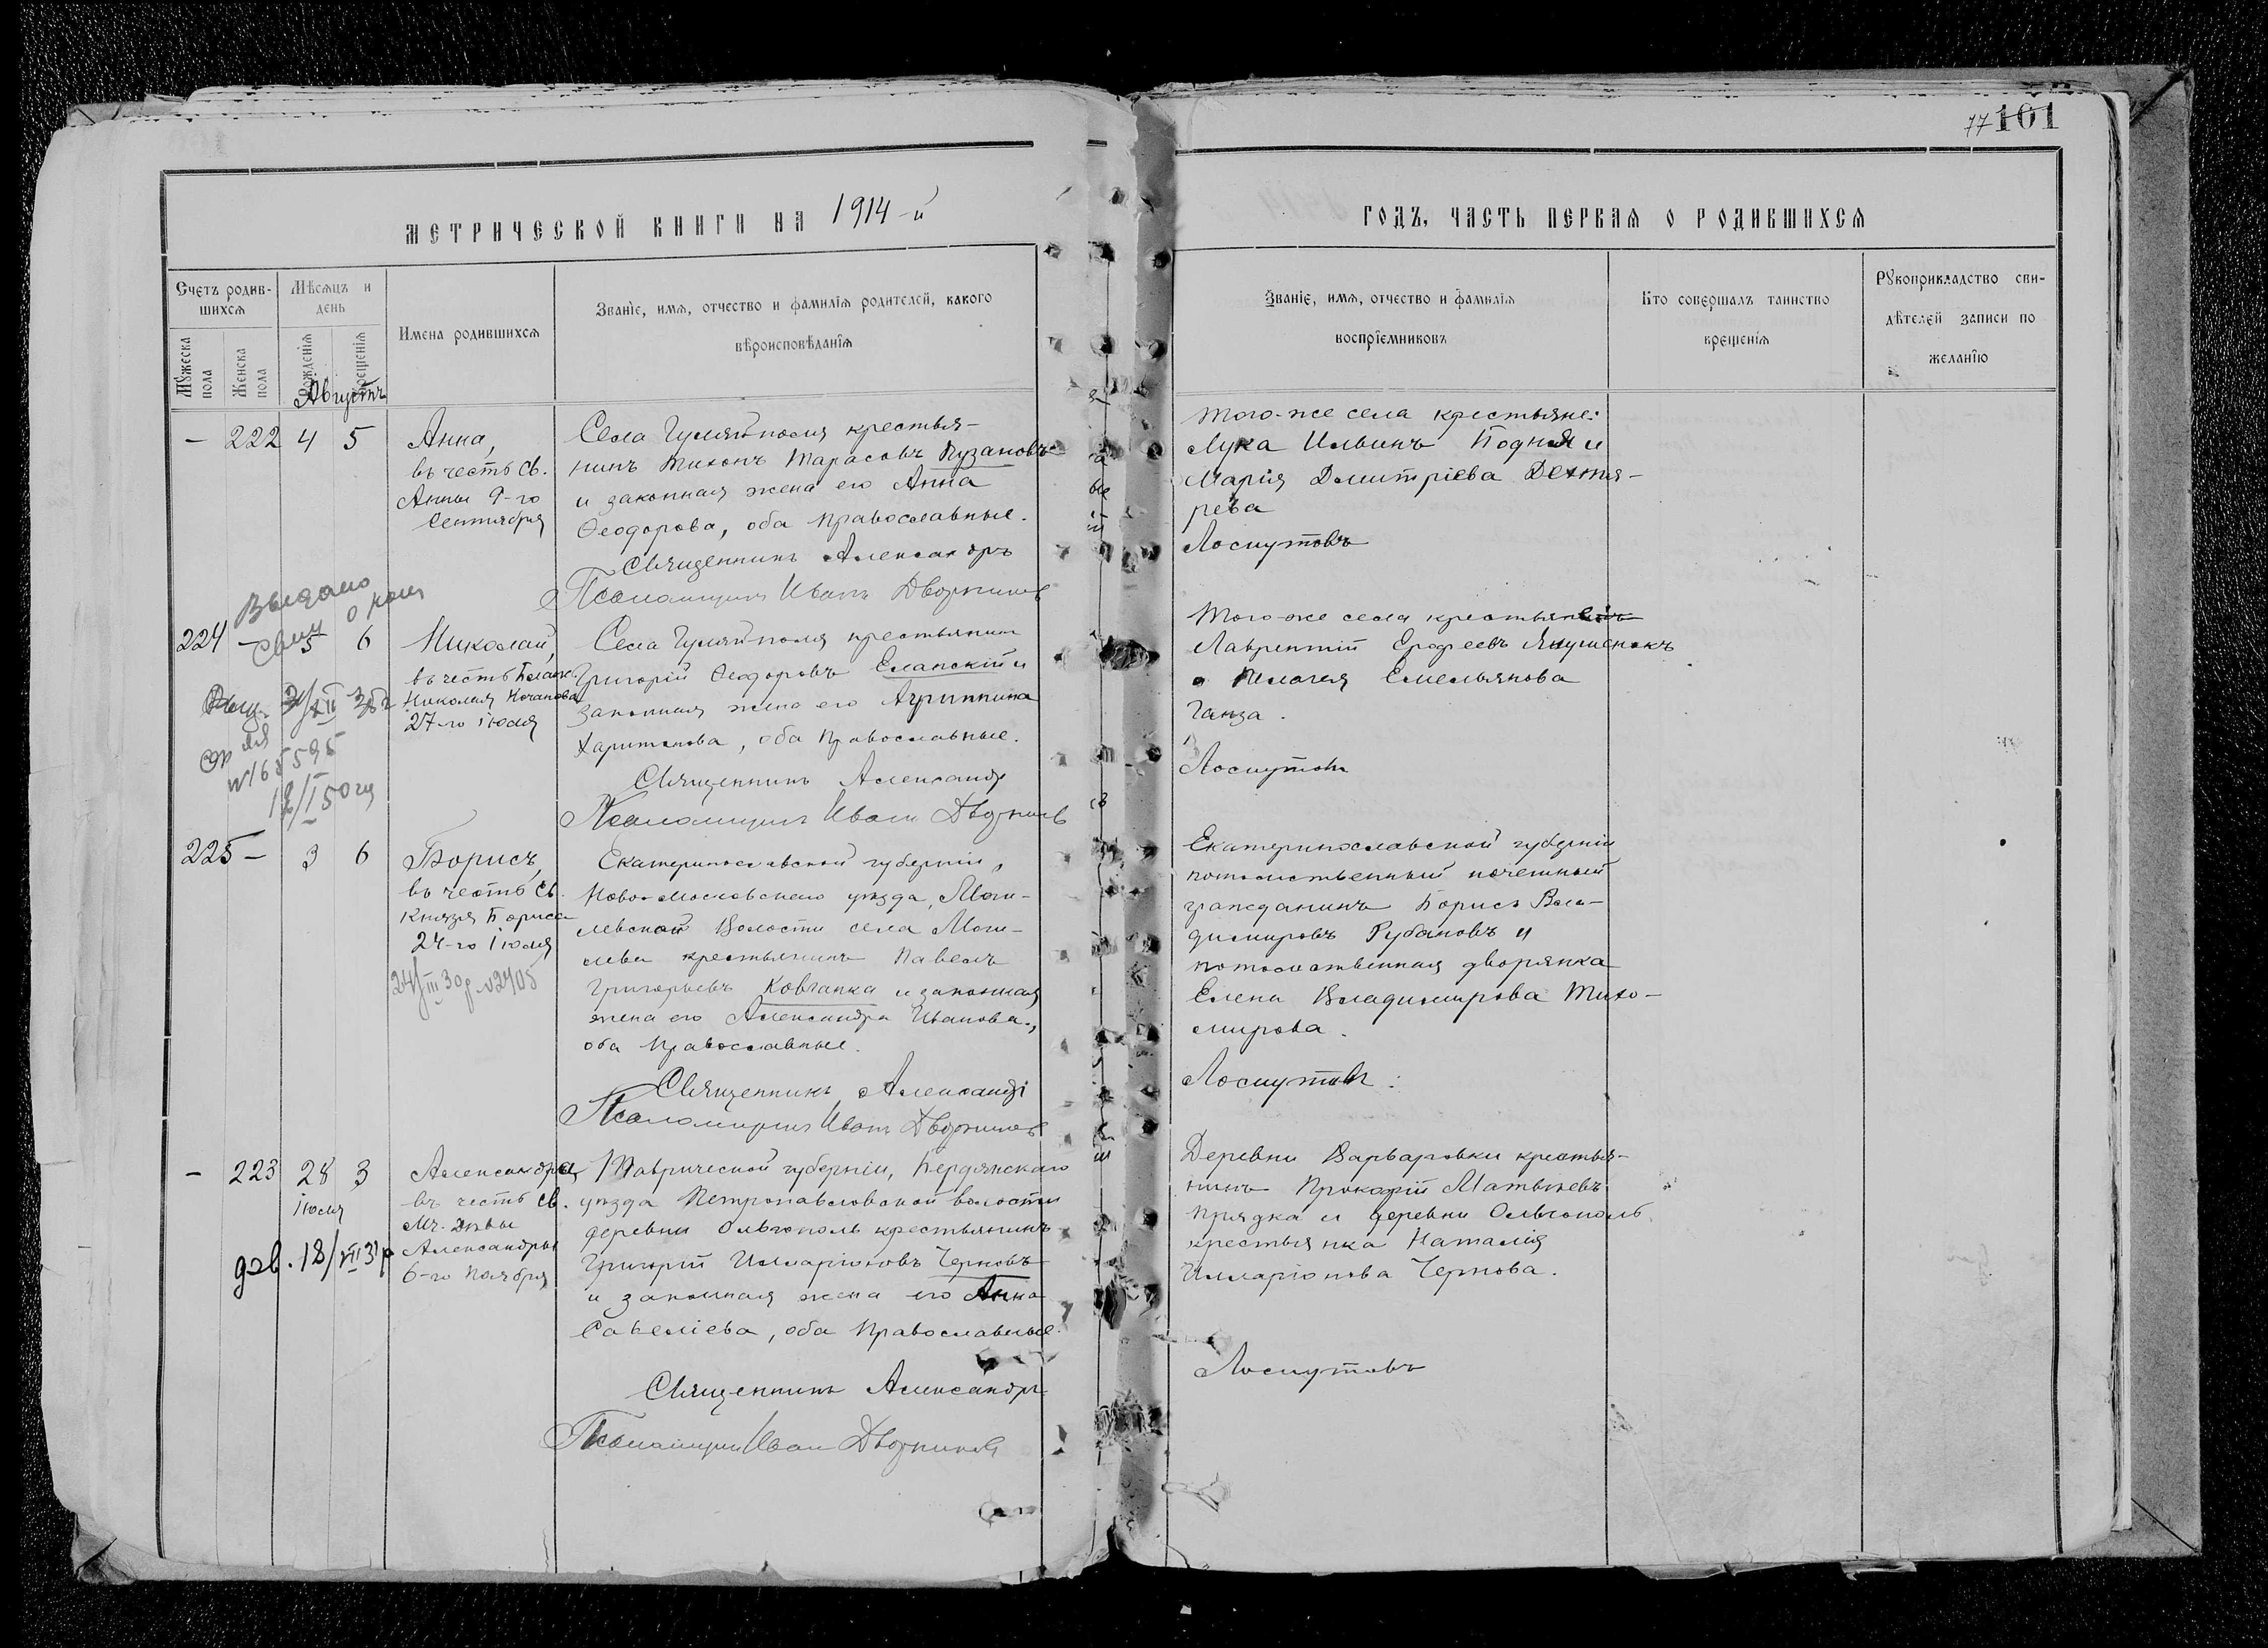 77 101
МЕТРИЧЕСКОЙ КНИГИ НА 1914-й
ГОДЪ, ЧАСТЬ ПЕРВАЯ О РОДИВШИХСЯ
Счетъ родив-
шихся
Мужеска пола
Женска пола
Мѣсяцъ и
день
Рожденія
Крещенія
Имена родившихся
Званіе, имя, отчество и фамилія родителей, какого
вѣроисповѣданія
Званіе, имя, отчество и фамилія
воспріемниковъ
Кто совершалъ таинство
крещенія
Рукоприкладство сви-
дѣтелей записи по
желанію
Августъ
– 222 4 5
Анна,
въ честь св.
Анны 9-го
Сентября
Села Гуляйполя крестья-
нинъ Тихонъ Тарасовъ Пузановъ
и законная жена его Анна
Ѳеодорова, оба православные.
Священникъ Александръ
Псаломщикъ Иванъ Дворниковъ
Того-же села крестьяне:
Лука Ильинъ Бодня и
Марія Димитріева Дехтя-
рева
Лоскутовъ
Выдано
224 – 5 6
Николай,
въ честь Блаж.
Николая Кочанова
27-го іюля
№165595
12/I 50
Села Гуляйполя крестьянин
Григорій Ѳеодоровъ Еланскій и
законная жена его Агриппина
Харитонова, оба православные.
Священникъ Александр
Псаломщикъ Иван Дворников
Того-же села крестьяне
Лаврентій Ерофеевъ Янушенокъ
и Пелагея Емельянова
Ганза.
Лоскутовъ
225 – 3 6
Борисъ,
въ честь св.
Князя Бориса
24-го іюля
24/III 30 г №2405
Екатеринославской губерніи,
Ново-Московскаго уѣзда, Моги-
левской Волости села Моги-
лева крестьянинъ Павелъ
Григорьевъ Ковганка и законная
жена его Александра Иванова,
оба православные.
Священникъ Александръ
Псаломщикъ Иванъ Дворниковъ
Екатеринославской губерніи
потомственный почетный
гражданинъ Борисъ Вла-
димировъ Рубановъ и
потомственная дворянка
Елена Владимирова Тихо-
мирова.
Лоскутовъ
– 223 28 3
іюля
Александра,
въ честь св.
мч. дѣвы
Александры
6-го Ноября
дов. 18/VII 31 р
Таврической губерніи, Бердянскаго
уѣзда Петропавловской волости
деревни Ольгополь крестьянинъ
Григорій Илларіоновъ Черновъ
и законная жена его Анна
Савеліева, оба православные.
Священникъ Александръ
Псаломщикъ Иван Дворников
Деревни Варваровки крестья-
нинъ Прокофій Матвѣевъ
Прядка и деревни Ольгополь
крестьянка Наталія
Илларіонова Чернова.
Лоскутовъ